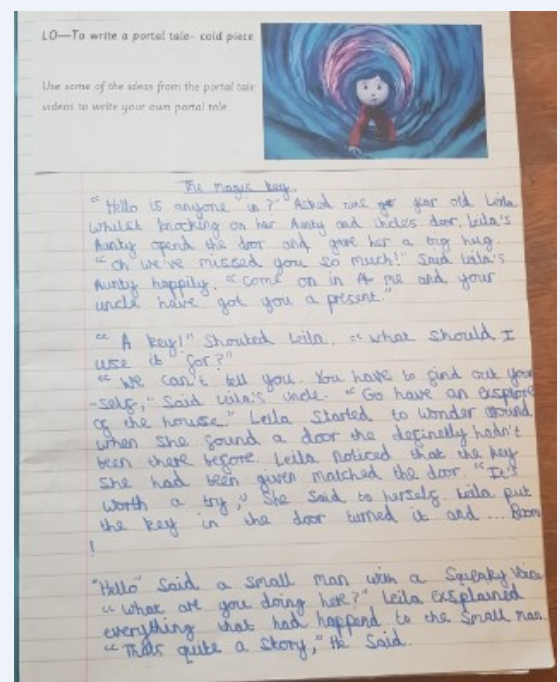 LO—To write a portal tale- cold piece
Use some of the ideas from the portal tale
videos to write your own portal tale
The magic key.
"Hello is anyone in?" Asked nine year old Leila
whilst knocking on her Aunty and uncles door. Leila's
Aunty opend the door and gave her a big hug.
"Oh we've missed you so much!" Said Leila's
Aunty happily. "Come on in me and your
uncle have got you a present."
"A key!" Shouted Leila. "what should I
use it for?"
"We can't tell you. You have to find out your
-self," Said Leila's uncle. "Go have an exsplore
of the house." Leila Started to wonder around
when she found a door the definelly hadn't
been there before. Leila noticed that the key
She had been given matched the door. "It's
worth a try," She said to herself. Leila put
the key in the door turned it and ... Boom
!
"Hello" Said a small man with a Squeaky Voice
"What are you doing here?" Leila exsplained
everything that had happend to the Small man.
"Thats quite a story," He Said.